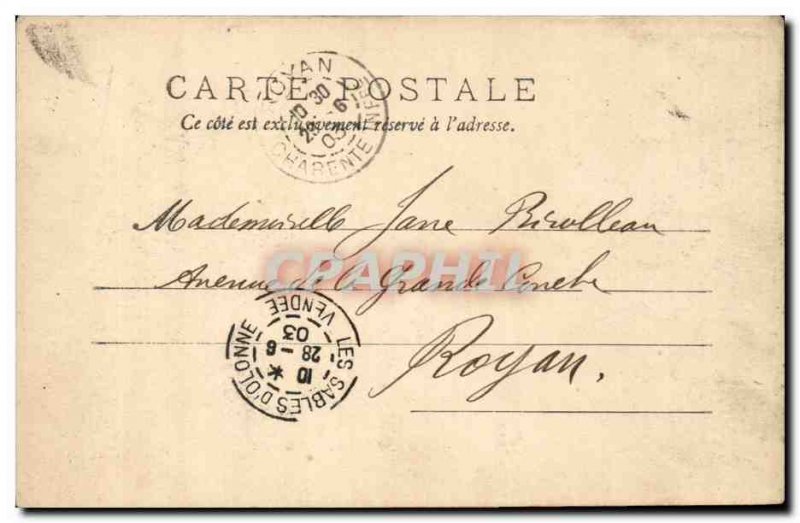 CARTE POSTALE
Ce côté est exclusivement réservé à l'adresse.
ROYAN
10 30
28 - 6
03
CHARENTE INFRE
Mademoiselle Jane
Avenue de la Grande Conche
CPAPHIL
Royan.
LES SABLES D'OLONNE
10 *
28 - 6
03
VENDEE